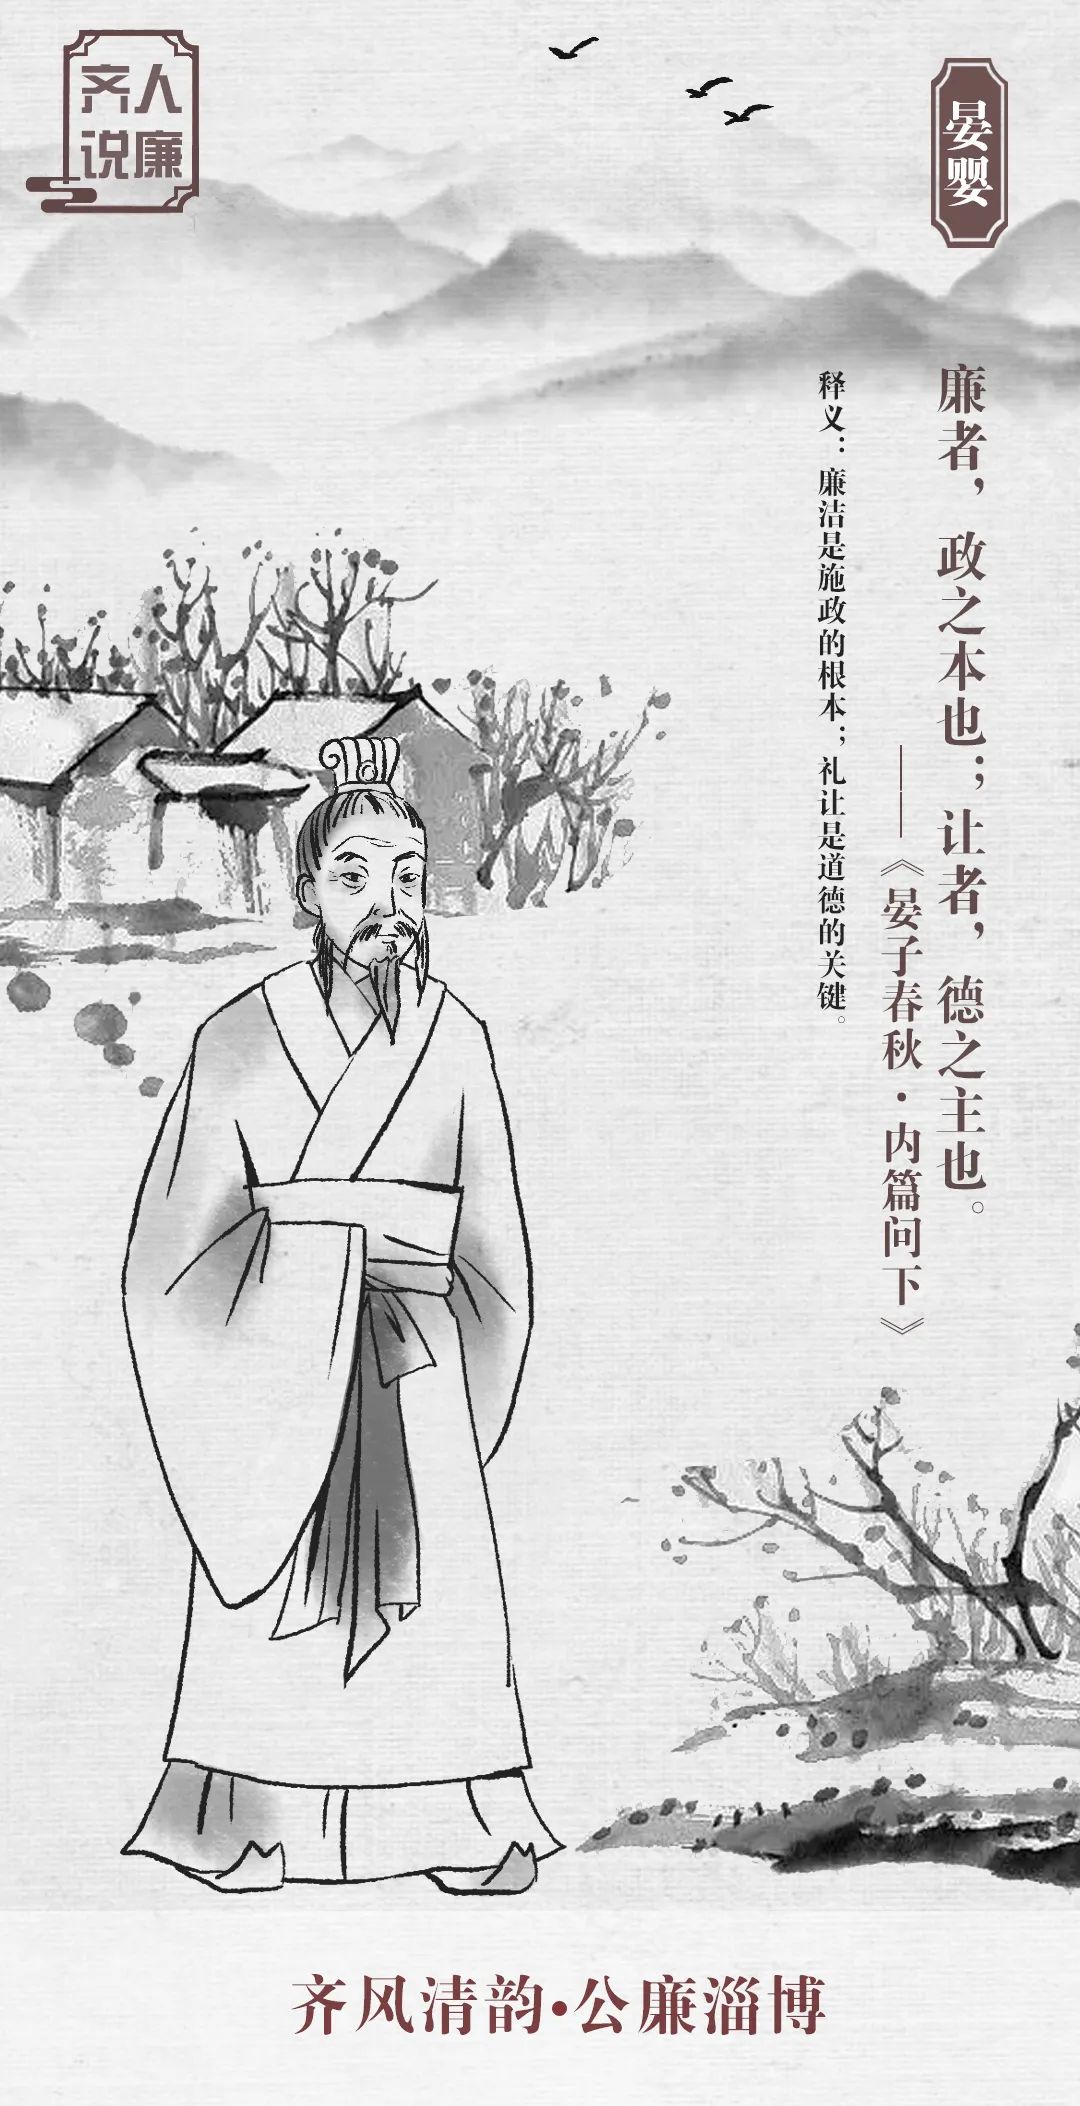 齐人
说廉
晏婴
廉者，政之本也；让者，德之主也。
——《晏子春秋·内篇问下》
释义：廉洁是施政的根本；礼让是道德的关键。
齐风清韵·公廉淄博